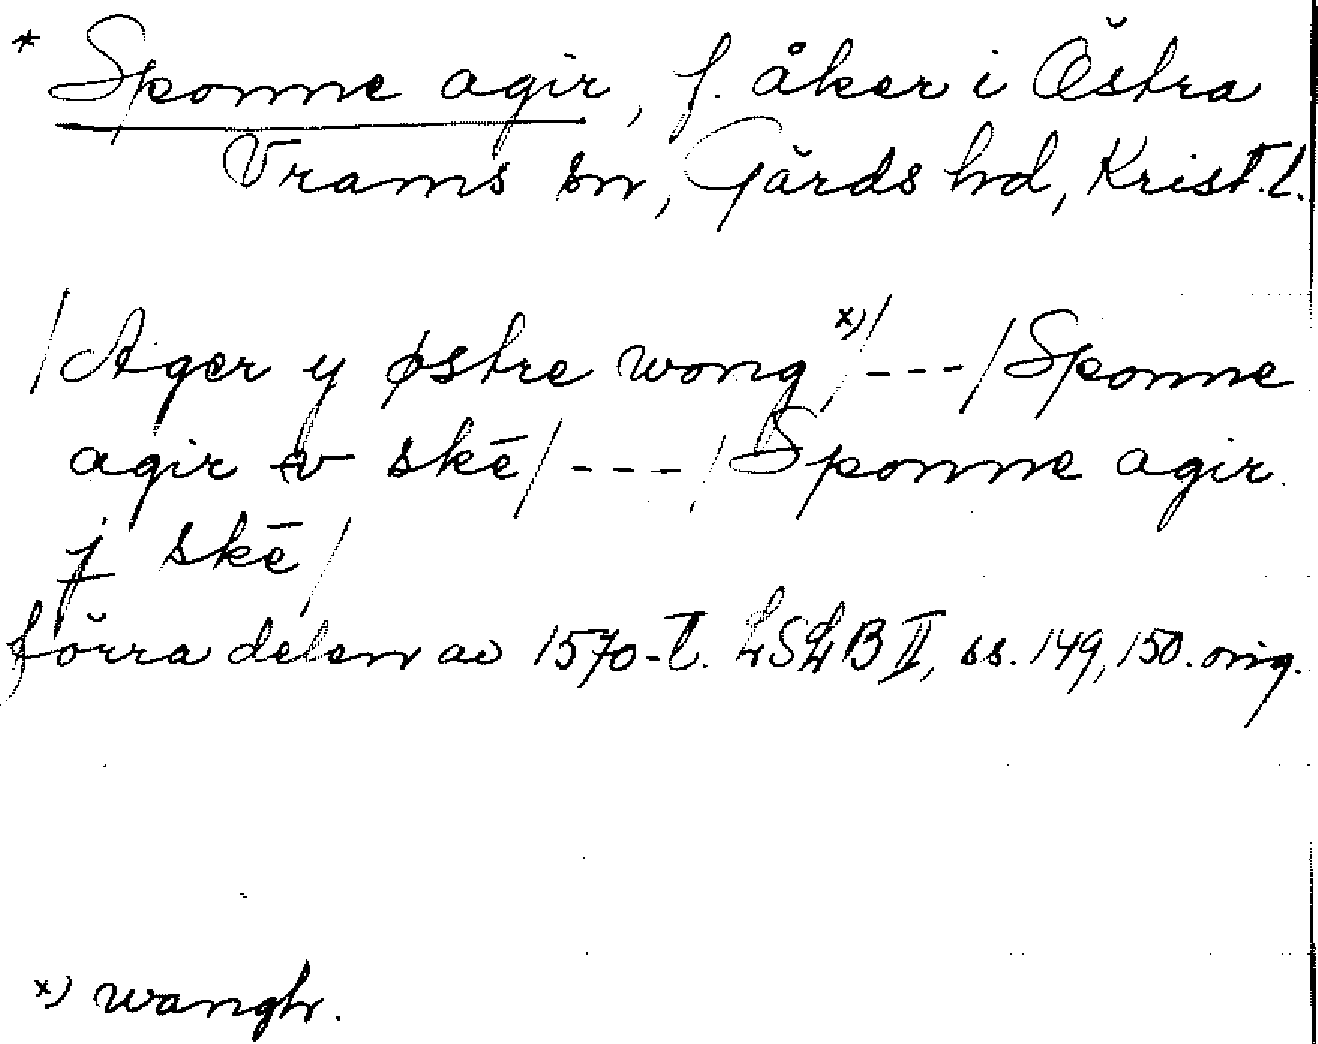 * Sponne agir, f. åker i Östra
Vrams sn, Gärds hd, Krist. l.
/Ager y østre wong x)/---/Sponne
agir v skē/---/Sponne agir
j skē/
förra delen av 1570-t. LSLB II, ss. 149, 150. orig.
x) wangh.